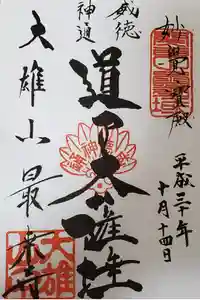 妙覚宝殿
平成三十年
十月十四日
威徳
神通
道了大薩埵
大雄山最乗寺